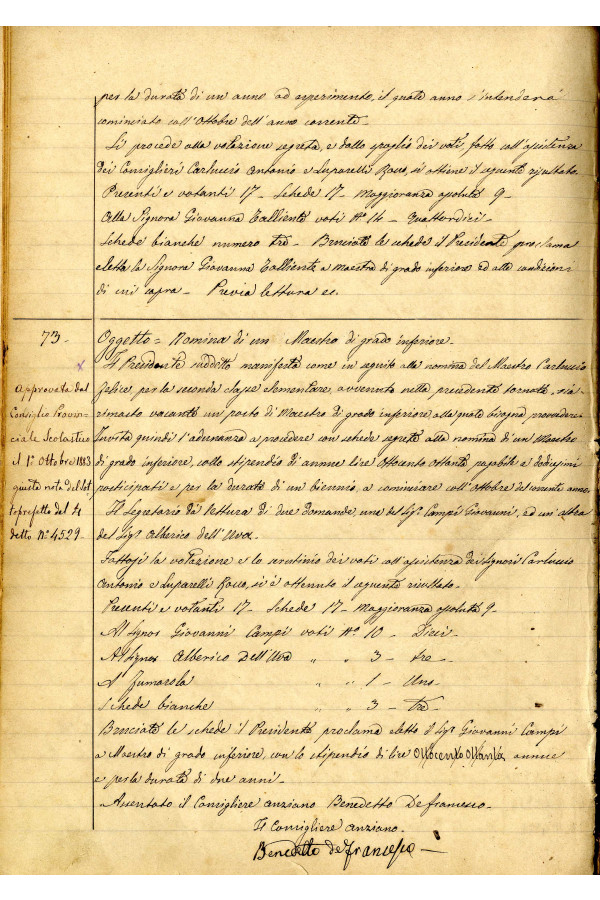 per la durata di un anno ad esperimento, il quale anno s'intenderà
cominciato coll'Ottobre dell'anno corrente.
Si procede alla votazione segreta, e dallo spoglio dei voti fatto coll'assistenza
dei Consiglieri Carluccio Antonio e Luparelli Rocco, si ottiene il seguente risultato.
Presenti e votanti 17 - Schede 17 - Maggioranza assoluta 9 -
Alla Signora Giovanna Tallienti voti N° 14 - Quattordici -
Schede bianche numero tre - Bruciate le schede il Presidente proclama
eletta la Signora Giovanna Tallienti a maestra di grado inferiore ed alle condizioni
di cui sopra - Previa lettura ec.
73 -
Approvata dal
Consiglio Provin-
ciale Scolastico
il 1° Ottobre 1883
giusta nota del Sot
toprefetto del 4
detto N° 4529 -
Oggetto = Nomina di un Maestro di grado inferiore -
Il Presidente suddetto manifesta come in seguito alla nomina del Maestro Carluccio
Felice, per la seconda classe elementare, avvenuta nella precedente tornata, sia
rimasto vacante un posto di Maestro di grado inferiore, alla quale bisogna provvedere -
Invita quindi l'adunanza a procedere con schede segrete alla nomina di un Maestro
di grado inferiore, collo stipendio di annue lire Ottocento Ottanta pagabili a dodicesimi
posticipati e per la durata di un biennio, a cominciare coll'Ottobre del corrente anno -
Il Segretario dà lettura di due domande, una del Sigr. Campi Giovanni, ed un'altra
del Sigr Alberico dell'Uva -
Fattasi la votazione e lo scrutinio dei voti coll'assistenza dei Signori Carluccio
Antonio e Luparelli Rocco, si è ottenuto il seguente risultato -
Presenti e votanti 17 - Schede 17 - Maggioranza assoluta 9 -
Al Signor Giovanni Campi voti N° 10 - Dieci -
Al Signor Alberico Dell'Uva " " 3 - tre -
A Fumarola " " 1 - Uno -
Schede bianche " 3 - Tre -
Bruciate le schede il Presidente proclama eletto il Sigr Giovanni Campi
a Maestro di grado inferiore, con lo stipendio di lire Ottocento Ottanta annue
e per la durata di due anni -
Assentato il Consigliere anziano Benedetto De Francesco -
Il Consigliere anziano -
Benedetto de Francesco -